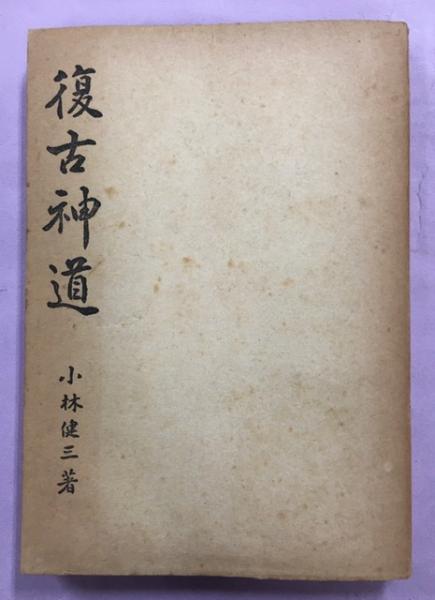 復古神道
小林健三著